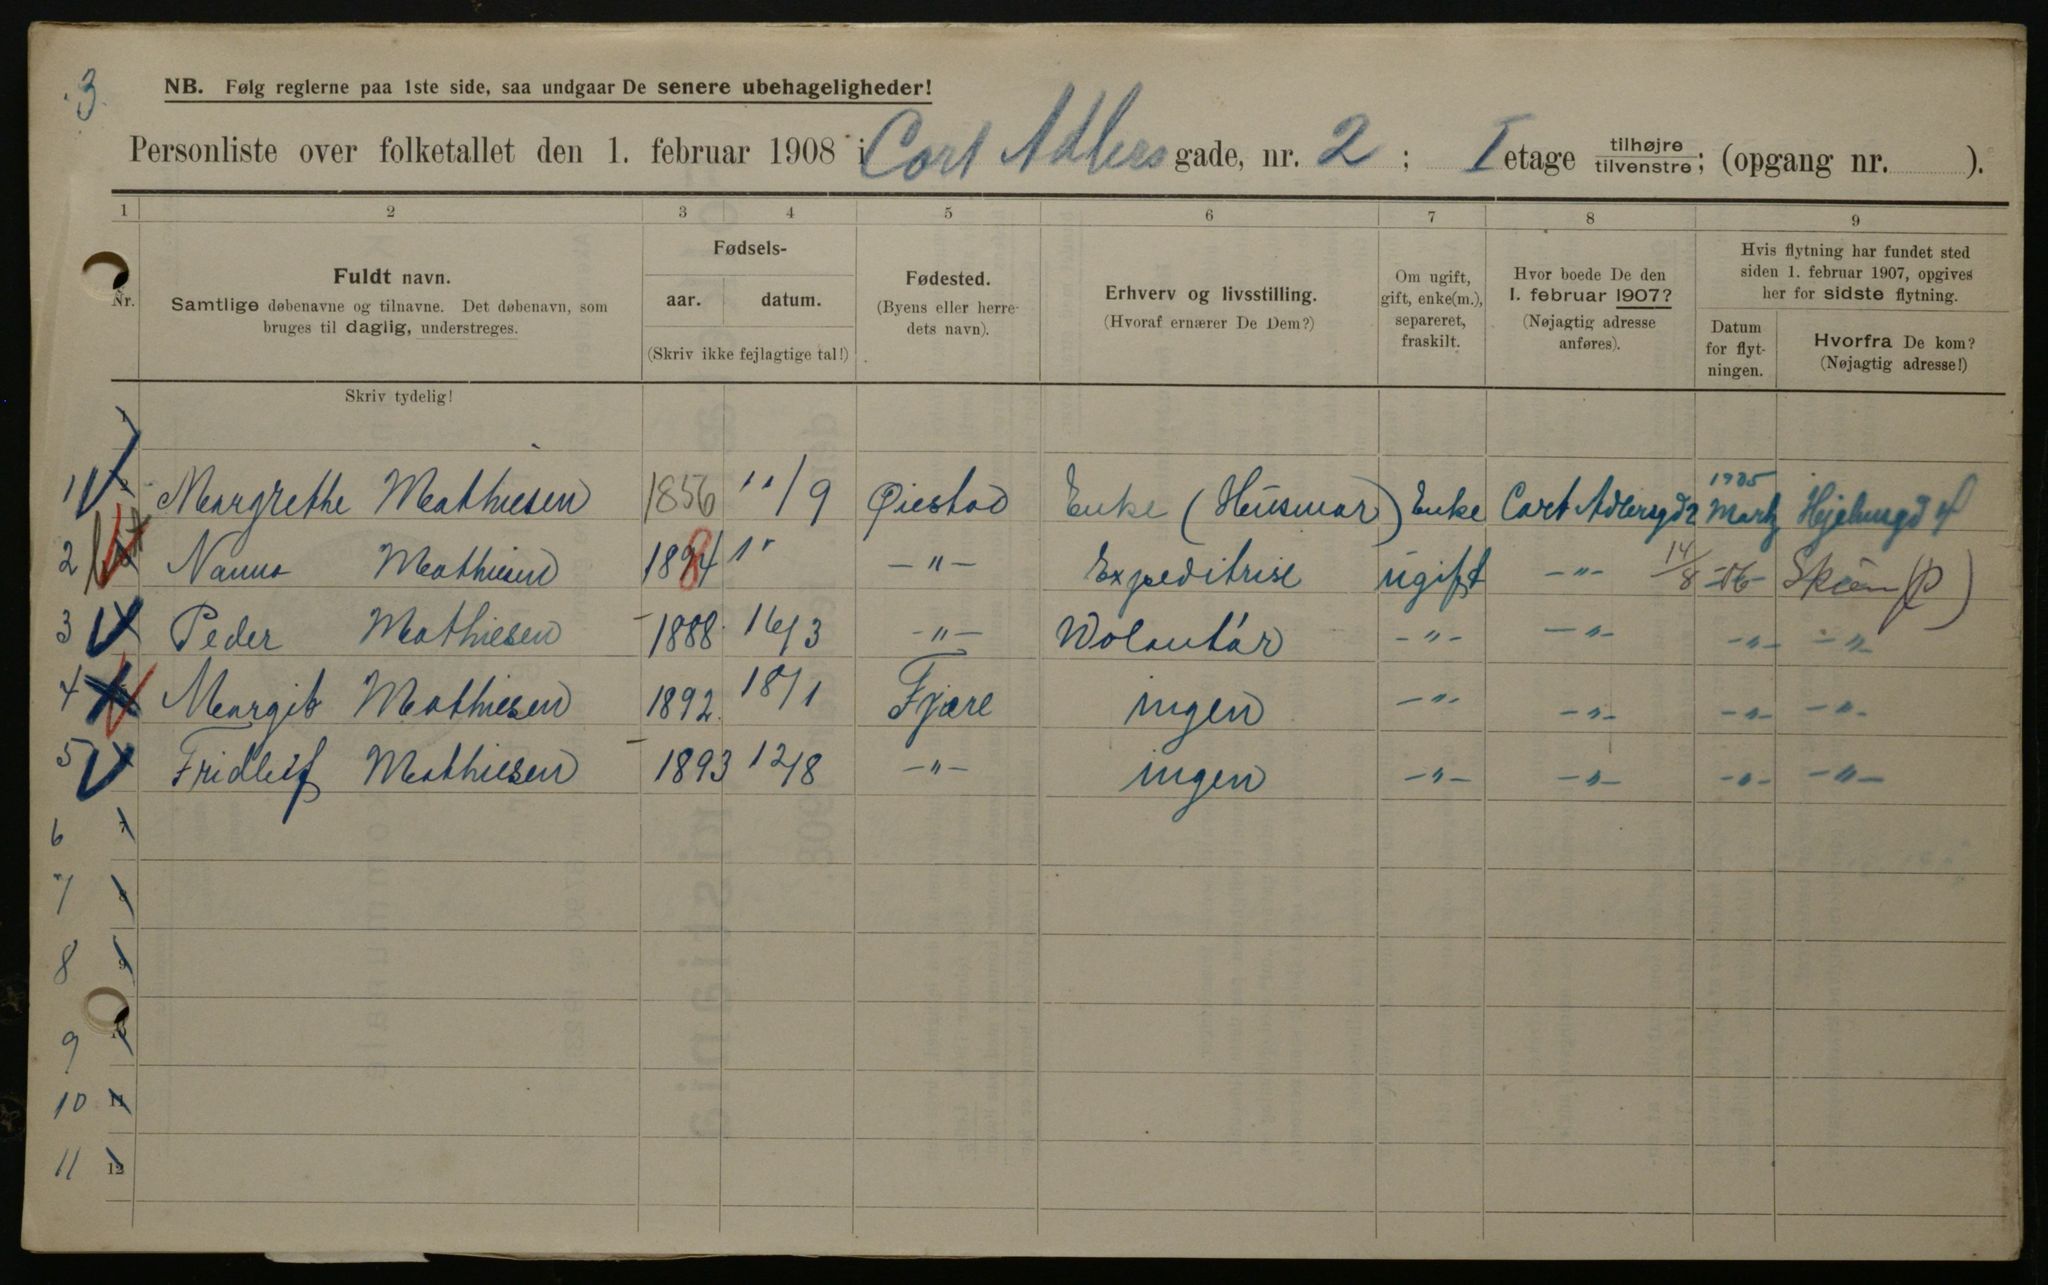 3.
NB. Følg reglerne paa 1ste side, saa undgaar De senere ubehageligheder!
Personliste over folketallet den 1. februar 1908 i Cort Adlers gade, nr. 2; I etage tilhøjre/tilvenstre; (opgang nr. ).
1 2 3 4 5 6 7 8 9
Nr.
Fuldt navn.
Samtlige døbenavne og tilnavne. Det døbenavn, som
bruges til daglig, understreges.
Fødsels-
aar. datum.
(Skriv ikke fejlagtige tal!)
Fødested.
(Byens eller herre-
dets navn).
Erhverv og livsstilling.
(Hvoraf ernærer De Dem?)
Om ugift,
gift, enke(m.),
separeret,
fraskilt.
Hvor boede De den
1. februar 1907?
(Nøjagtig adresse
anføres).
Hvis flytning har fundet sted
siden 1. februar 1907, opgives
her for sidste flytning.
Datum
for flyt-
ningen.
Hvorfra De kom?
(Nøjagtig adresse!)
Skriv tydelig!
1 Margrethe Mathiesen 1856 11/9 Øiestad Enke (Husmor) Enke Cort Adlersgd 2 1905 Marts
2 Nanna Mathiesen 1884 -"- Expeditrise ugift -"- 14/8 -06- Skien (p)
3 Peder Mathiesen 1888 16/3 -"- Wolontär -"- -"- -"- -"-
4 Margit Mathiesen 1892. 18/1 Fjære ingen -"- -"- -"- -"-
5 Fridleif Mathiesen 1893 12/8 -"- ingen -"- -"- -"- -"-
6 7
7 8
8 9
9 10
10 11
11 12